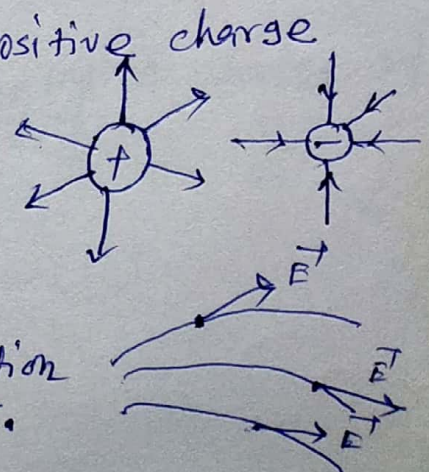 ositive charge
+ -
E
tion
E
E